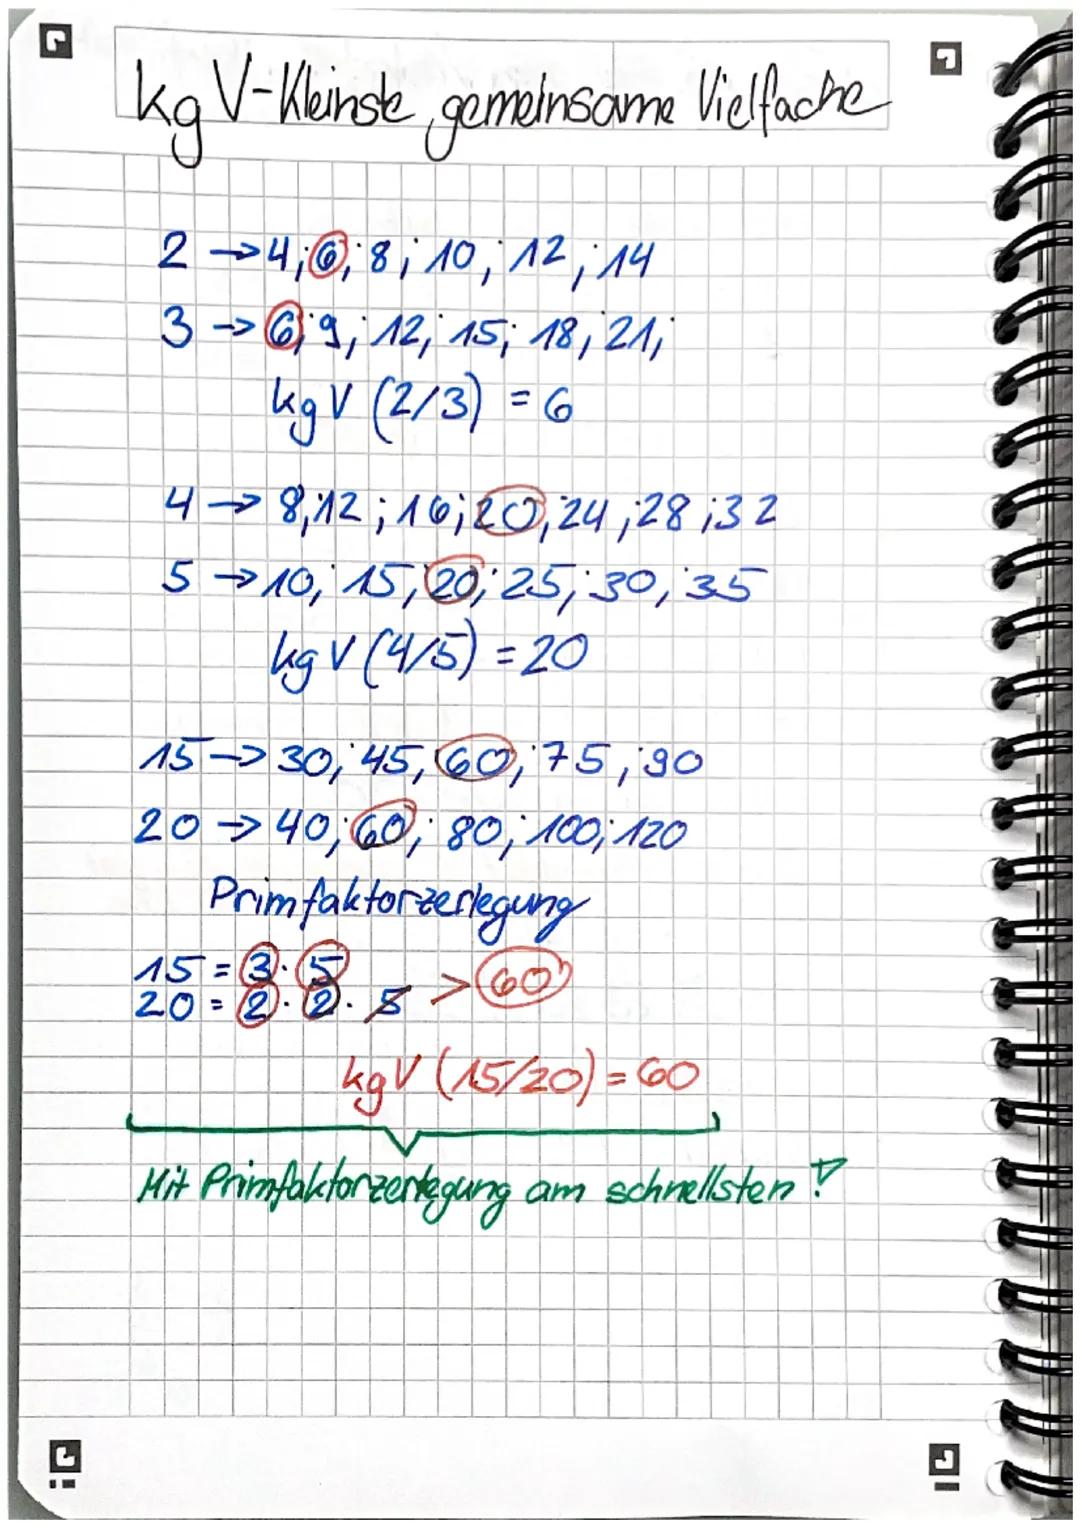 kgV-Kleinste gemeinsame Vielfache
2 → 4; 6; 8; 10; 12; 14
3 → 6; 9; 12; 15; 18; 21;
kgV (2/3) = 6
4 → 8; 12; 16; 20; 24; 28; 32
5 → 10; 15; 20; 25; 30; 35
kgV (4/5) = 20
15 → 30; 45; 60; 75; 90
20 → 40; 60; 80; 100; 120
Primfaktorzerlegung
15 = 3 · 5
20 = 2 · 2 · 5 > 60
kgV (15/20) = 60
Mit Primfaktorzerlegung am schnellsten !